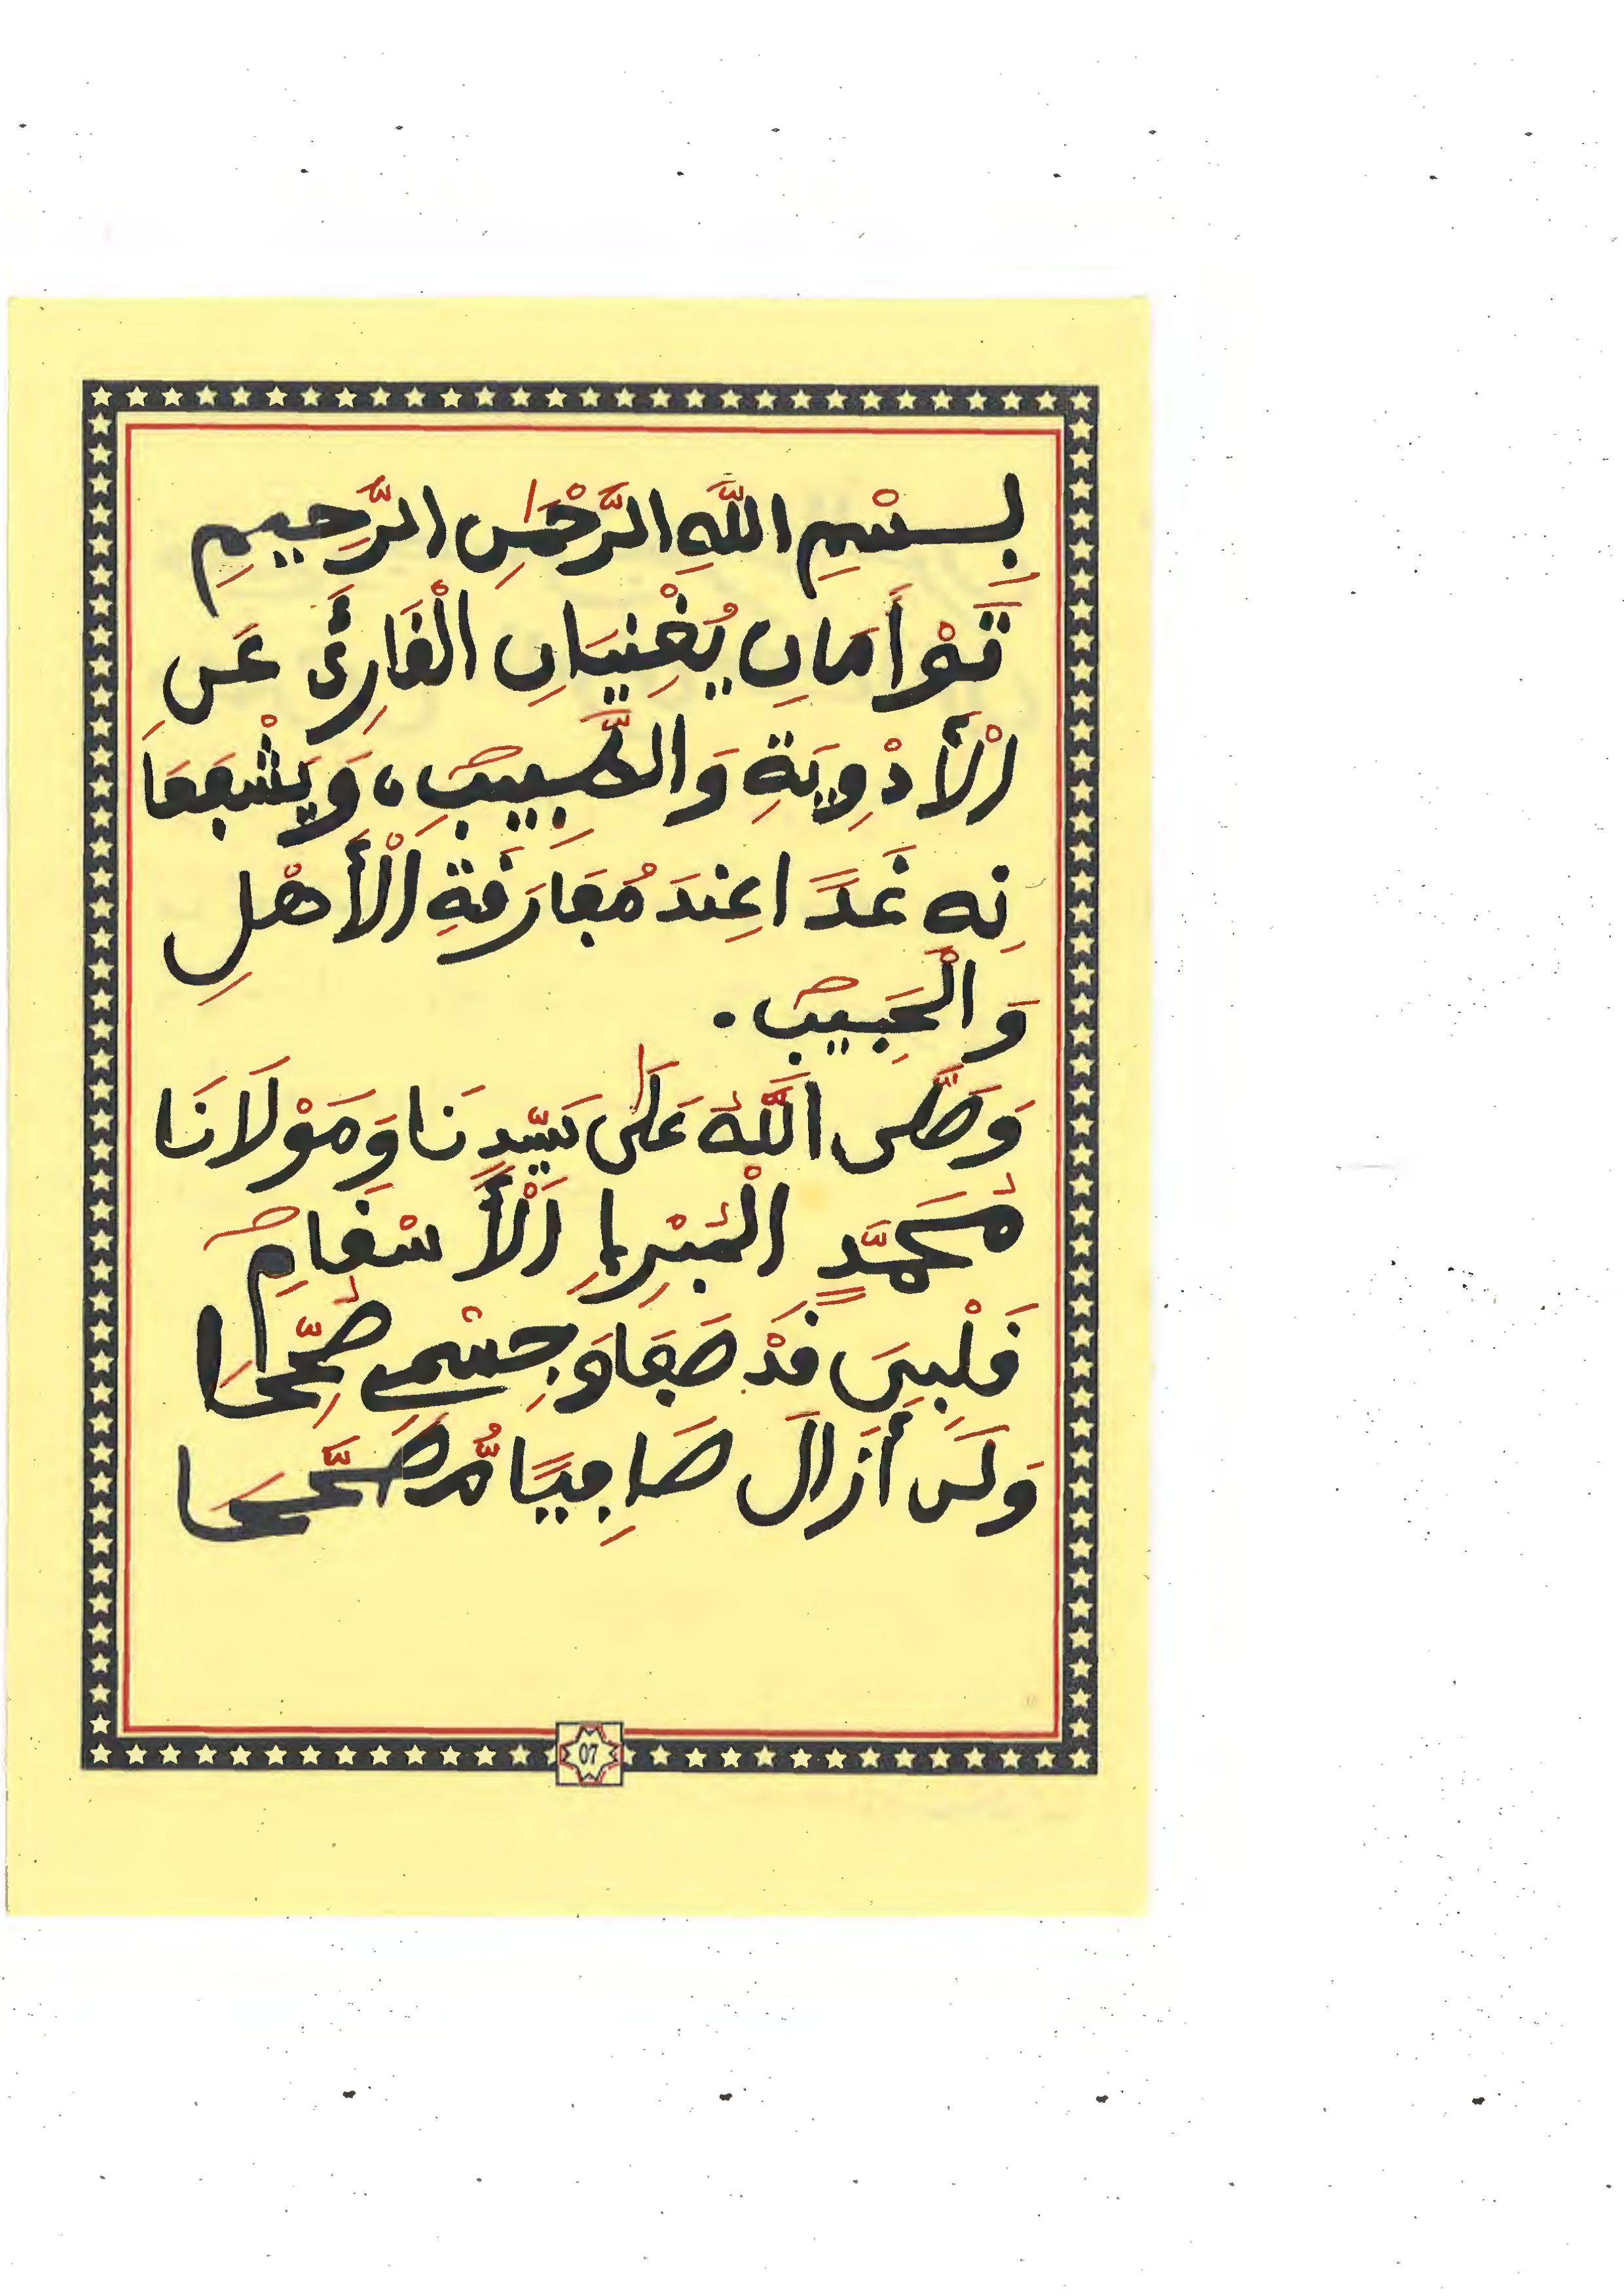 بِسْمِ اللَّهِ الرَّحْمَٰنِ الرَّحِيمِ
تَوْأَمَانِ يُغْنِيَانِ الْقَارِئَ عَنِ
الْأَدْوِيَةِ وَالطَّبِيبِ، وَيَشْفَعَا
نِهِ غَدًا عِندَ مُفَارَقَةِ الْأَهْلِ
وَالْحَبِيبِ.
وَصَلَّى اللَّهُ عَلَىٰ سَيِّدِنَا وَمَوْلَانَا
مُحَمَّدٍ الْمُبْرِئِ الْأَسْقَامِ
قَلْبِيَ قَدْ صَفَا وَجِسْمِي صُحِّحَا
وَلَن أَزَالَ صَافِيًا مُّصَحَّحَا
07